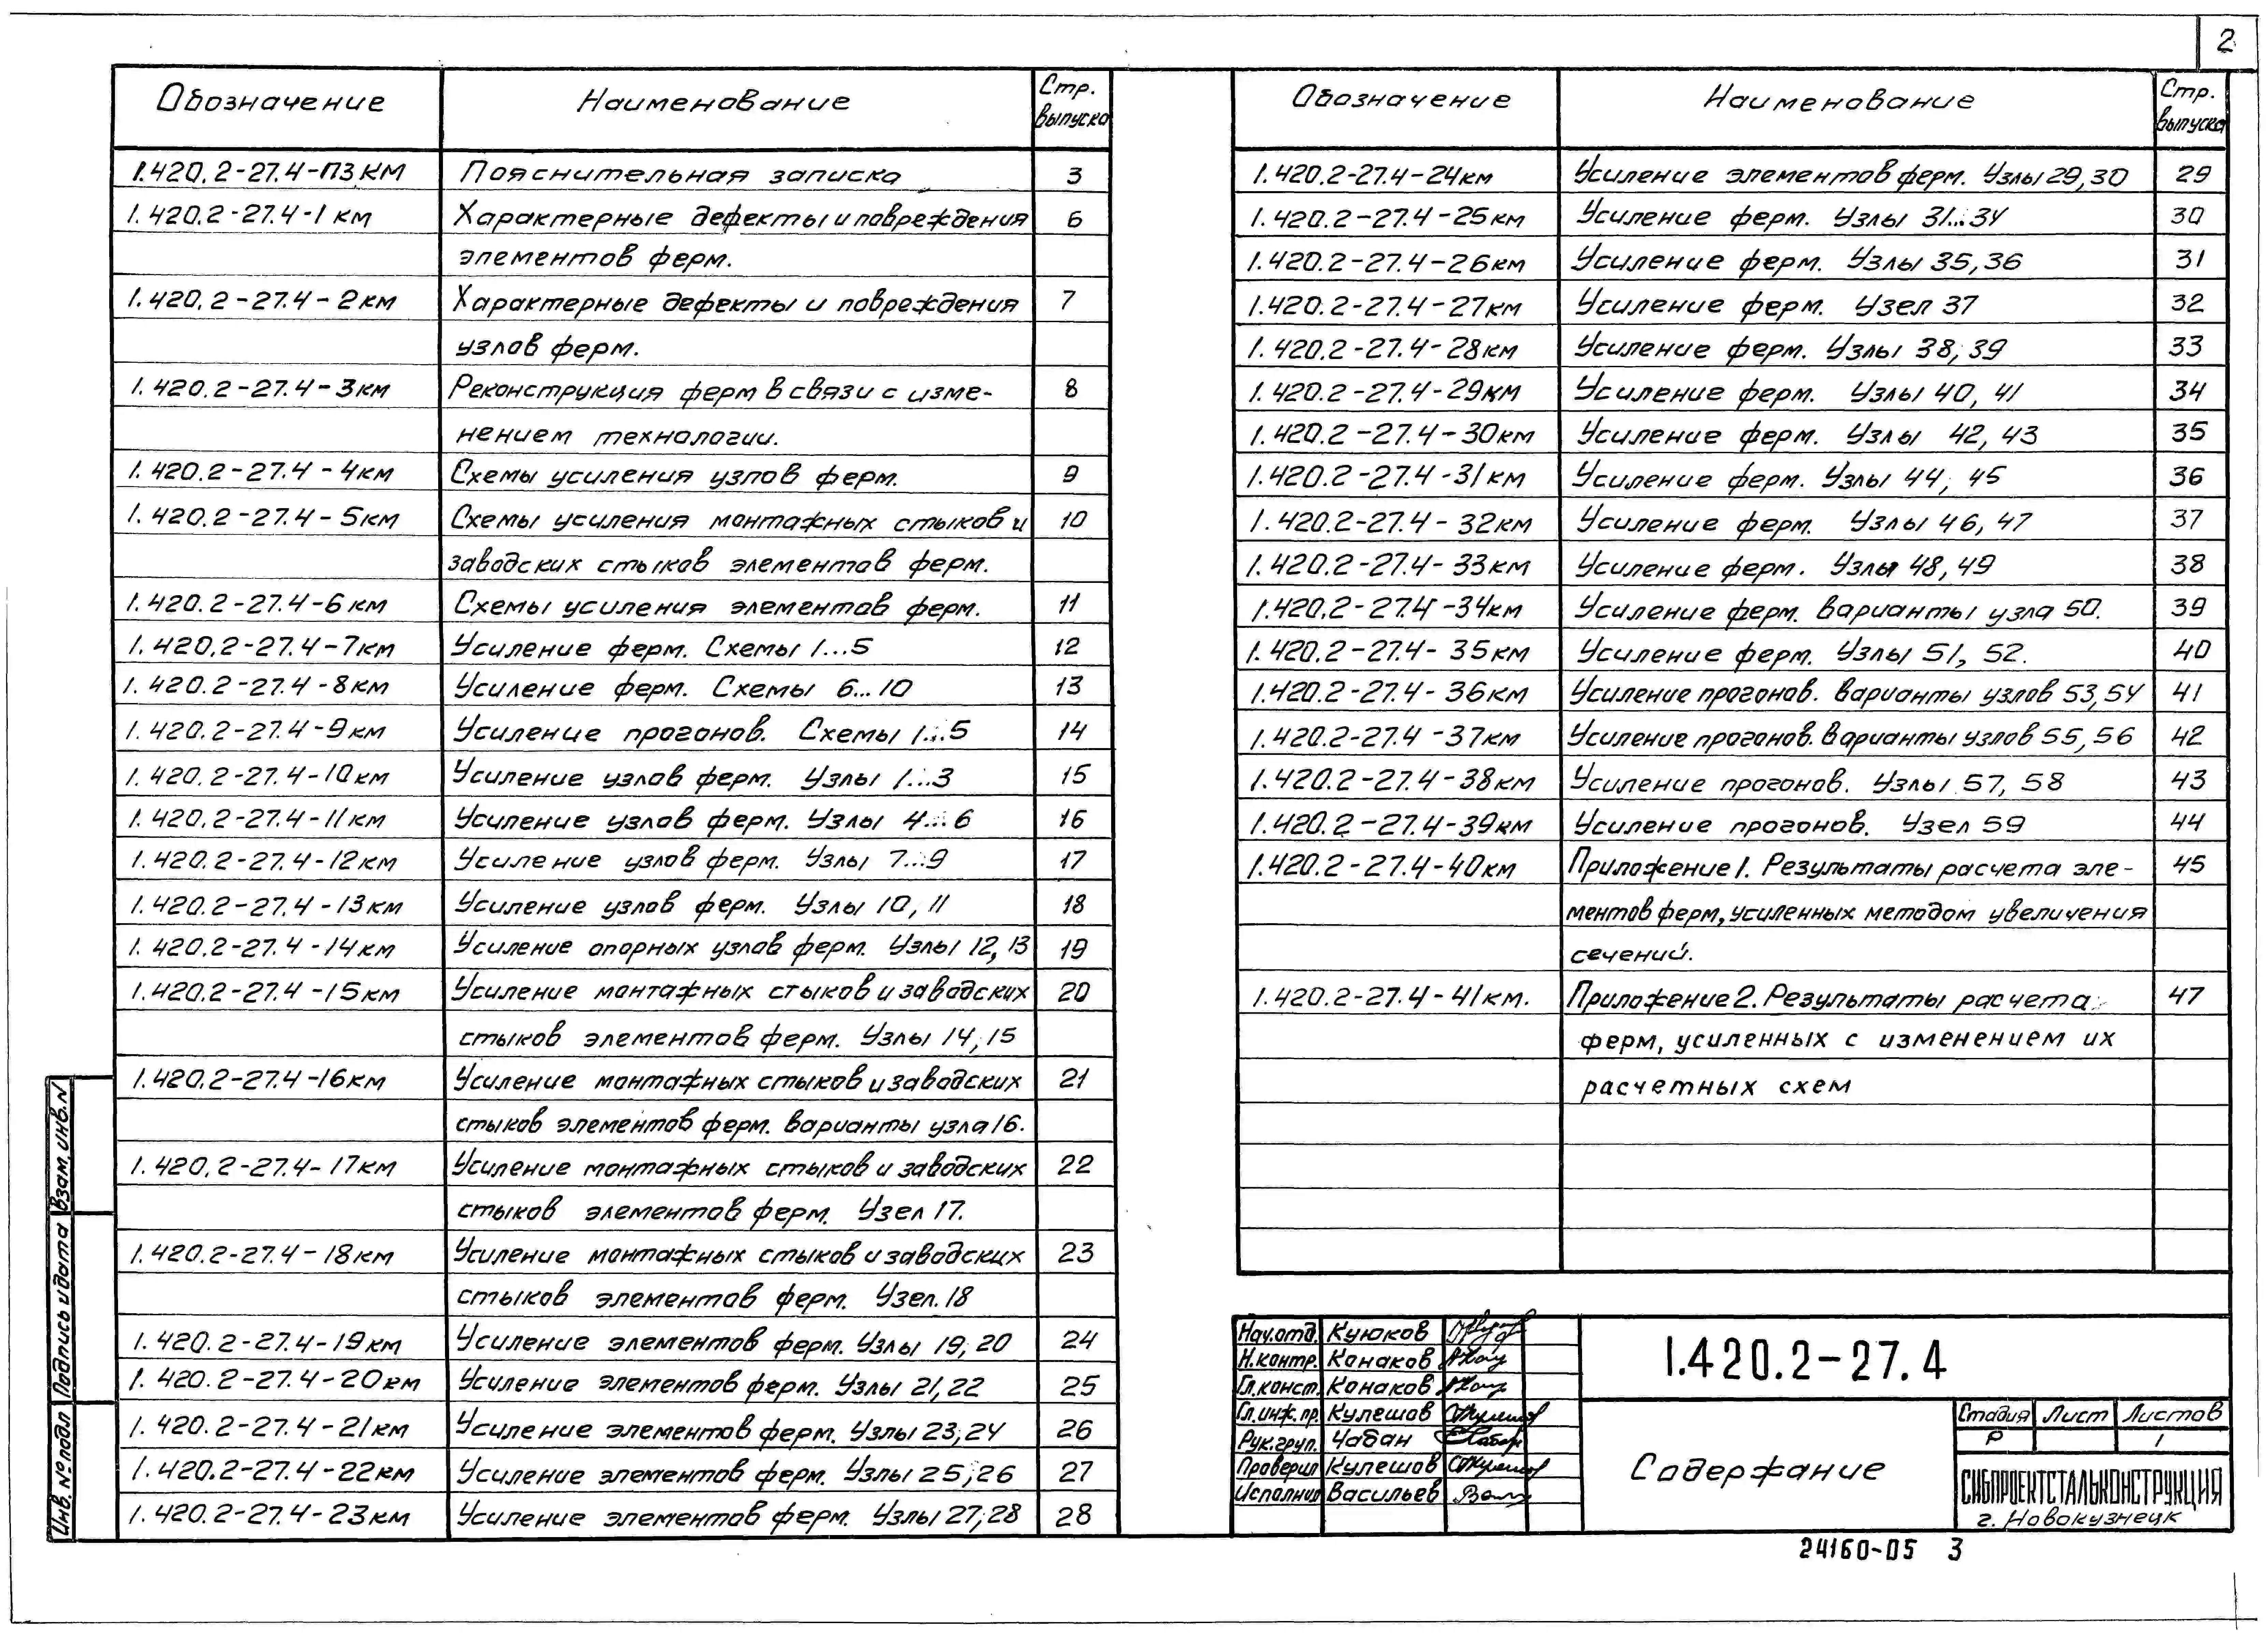 2
Обозначение Наименование Стр. выпуска
1.420.2-27.4-ПЗКМ Пояснительная записка 3
1.420.2-27.4-1км Характерные дефекты и повреждения 6
элементов ферм.
1.420.2-27.4-2км Характерные дефекты и повреждения 7
узлов ферм.
1.420.2-27.4-3км Реконструкция ферм в связи с изме- 8
нением технологии.
1.420.2-27.4-4км Схемы усиления узлов ферм. 9
1.420.2-27.4-5км Схемы усиления монтажных стыков и 10
заводских стыков элементов ферм.
1.420.2-27.4-6км Схемы усиления элементов ферм. 11
1.420.2-27.4-7км Усиление ферм. Схемы 1...5 12
1.420.2-27.4-8км Усиление ферм. Схемы 6...10 13
1.420.2-27.4-9км Усиление прогонов. Схемы 1...5 14
1.420.2-27.4-10км Усиление узлов ферм. Узлы 1...3 15
1.420.2-27.4-11км Усиление узлов ферм. Узлы 4...6 16
1.420.2-27.4-12км Усиление узлов ферм. Узлы 7...9 17
1.420.2-27.4-13км Усиление узлов ферм. Узлы 10, 11 18
1.420.2-27.4-14км Усиление опорных узлов ферм. Узлы 12, 13 19
1.420.2-27.4-15км Усиление монтажных стыков и заводских 20
стыков элементов ферм. Узлы 14, 15
1.420.2-27.4-16км Усиление монтажных стыков и заводских 21
стыков элементов ферм. Варианты узла 16.
1.420.2-27.4-17км Усиление монтажных стыков и заводских 22
стыков элементов ферм. Узел 17.
1.420.2-27.4-18км Усиление монтажных стыков и заводских 23
стыков элементов ферм. Узел. 18
1.420.2-27.4-19км Усиление элементов ферм. Узлы 19, 20 24
1.420.2-27.4-20км Усиление элементов ферм. Узлы 21, 22 25
1.420.2-27.4-21км Усиление элементов ферм. Узлы 23, 24 26
1.420.2-27.4-22км Усиление элементов ферм. Узлы 25, 26 27
1.420.2-27.4-23км Усиление элементов ферм. Узлы 27, 28 28
Обозначение Наименование Стр. выпуска
1.420.2-27.4-24км Усиление элементов ферм. Узлы 29, 30 29
1.420.2-27.4-25км Усиление ферм. Узлы 31...34 30
1.420.2-27.4-26км Усиление ферм. Узлы 35, 36 31
1.420.2-27.4-27км Усиление ферм. Узел 37 32
1.420.2-27.4-28км Усиление ферм. Узлы 38, 39 33
1.420.2-27.4-29км Усиление ферм. Узлы 40, 41 34
1.420.2-27.4-30км Усиление ферм. Узлы 42, 43 35
1.420.2-27.4-31км Усиление ферм. Узлы 44, 45 36
1.420.2-27.4-32км Усиление ферм. Узлы 46, 47 37
1.420.2-27.4-33км Усиление ферм. Узлы 48, 49 38
1.420.2-27.4-34км Усиление ферм. Варианты узла 50. 39
1.420.2-27.4-35км Усиление ферм. Узлы 51, 52. 40
1.420.2-27.4-36км Усиление прогонов. Варианты узлов 53, 54 41
1.420.2-27.4-37км Усиление прогонов. Варианты узлов 55, 56 42
1.420.2-27.4-38км Усиление прогонов. Узлы 57, 58 43
1.420.2-27.4-39км Усиление прогонов. Узел 59 44
1.420.2-27.4-40км Приложение 1. Результаты расчета эле- 45
ментов ферм, усиленных методом увеличения
сечений.
1.420.2-27.4-41км. Приложение 2. Результаты расчета 47
ферм, усиленных с изменением их
расчетных схем
Взам. инв. N
Подпись и дата
Инв. № подл
Нач.отд. Куюков
Н.контр. Конаков
Гл.конст. Конаков
Гл.инж.пр. Кулешов
Рук.груп. Чабан
Проверил Кулешов
Исполнил Васильев
1.420.2-27.4
Содержание
Стадия Лист Листов
Р 1
СИБПРОЕКТСТАЛЬКОНСТРУКЦИЯ
г. Новокузнецк
24160-05 3